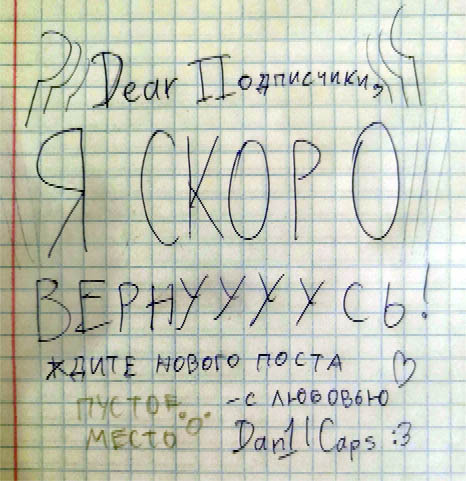 Dear Подписчики,
Я СКОРО
ВЕРНУУУУСЬ!
ЖДИТЕ НОВОГО ПОСТА ♡
ПУСТОЕ -С ЛЮБОВЬЮ
МЕСТО "О" Dan1l Caps :3